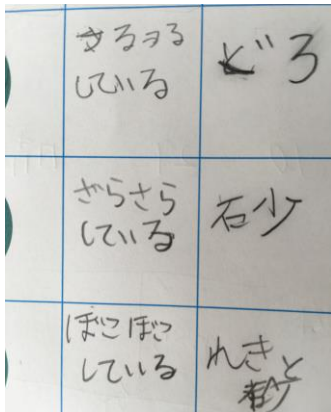 している
どろ
ざらさら
している
砂
ぼこぼこ
している
れきと
砂